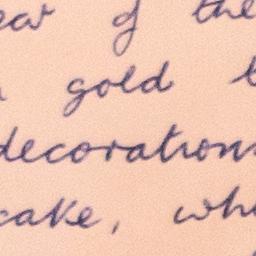 of the
gold
decorations
cake, wh